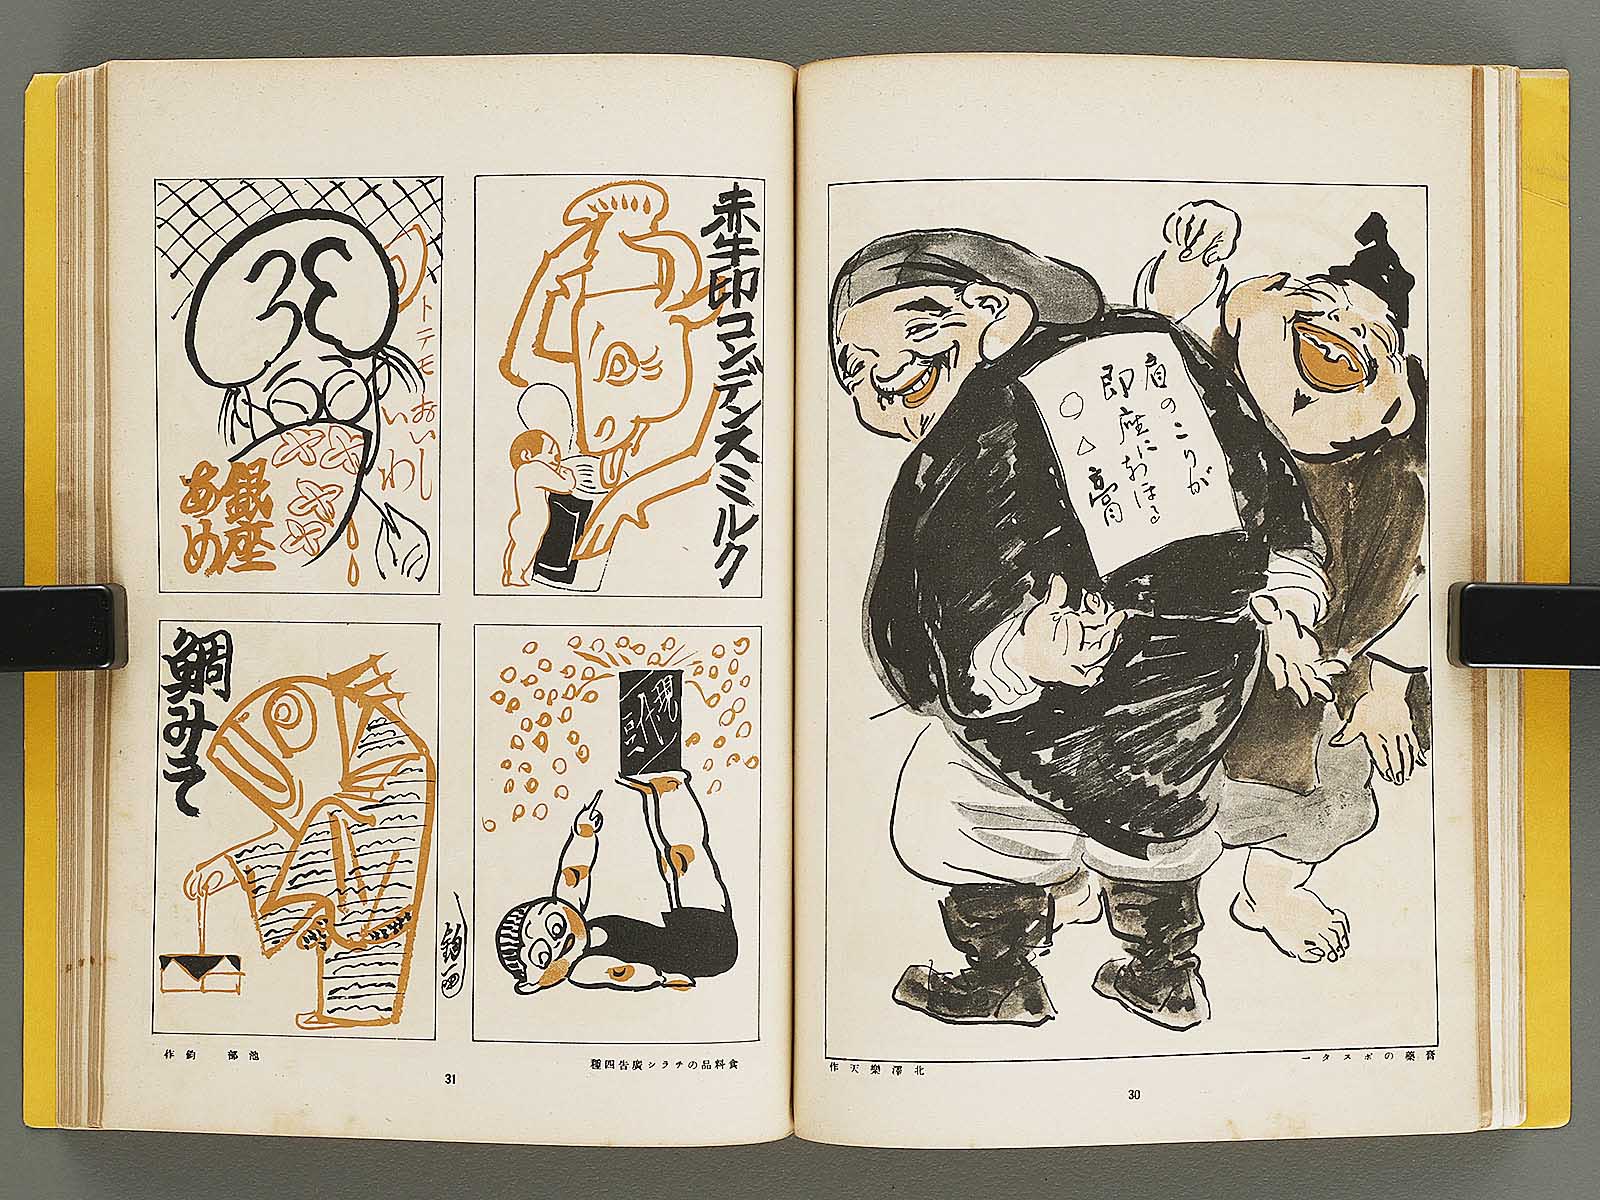 肩のこりが
即座になほる
○△膏
膏藥のポスター
北澤樂天作
30
赤牛印コンデンスミルク
トテモおいしい
わ
銀座
あめ
鯛みそ
食料品のチラシ廣告四種
池部鈞作
31